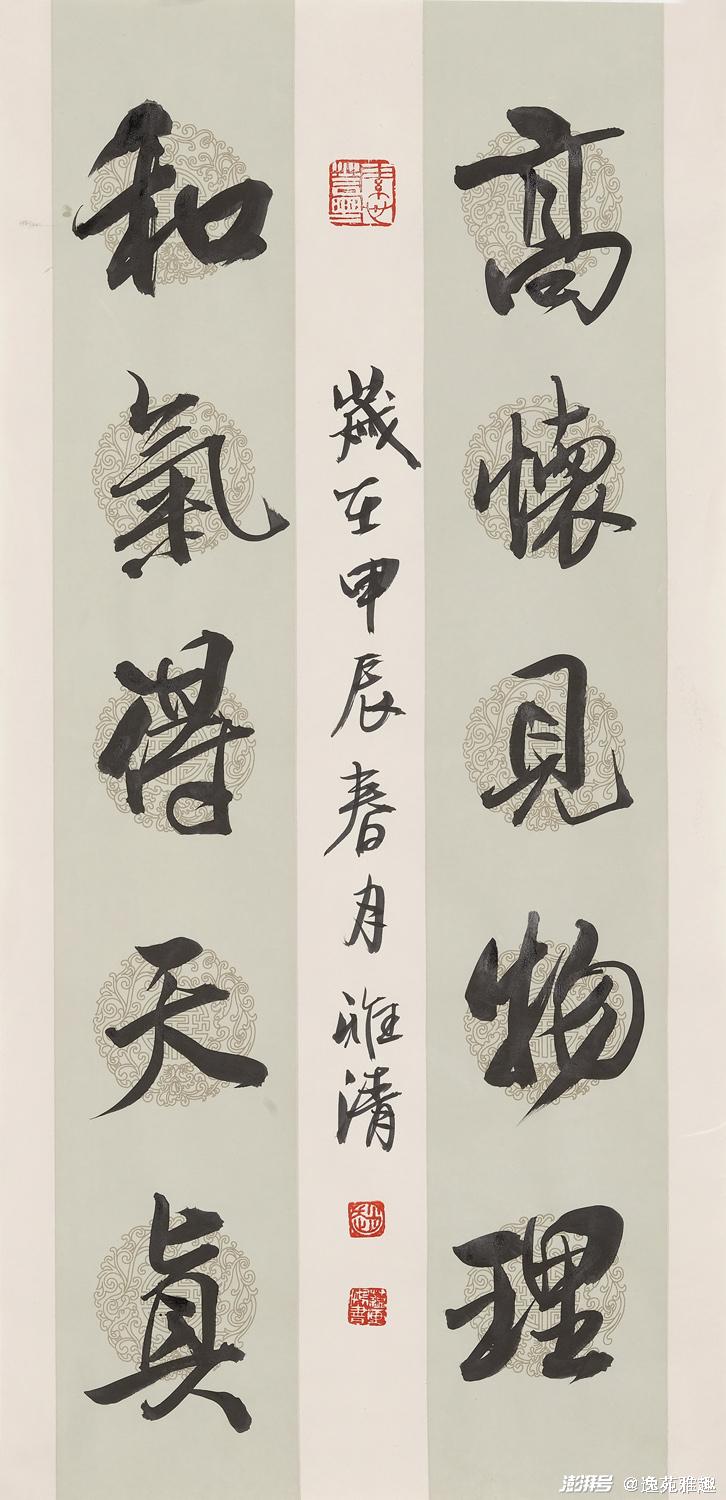 高懷見物理
和氣得天真
歲在甲辰春月 雅清
澎湃号 @逸苑雅趣